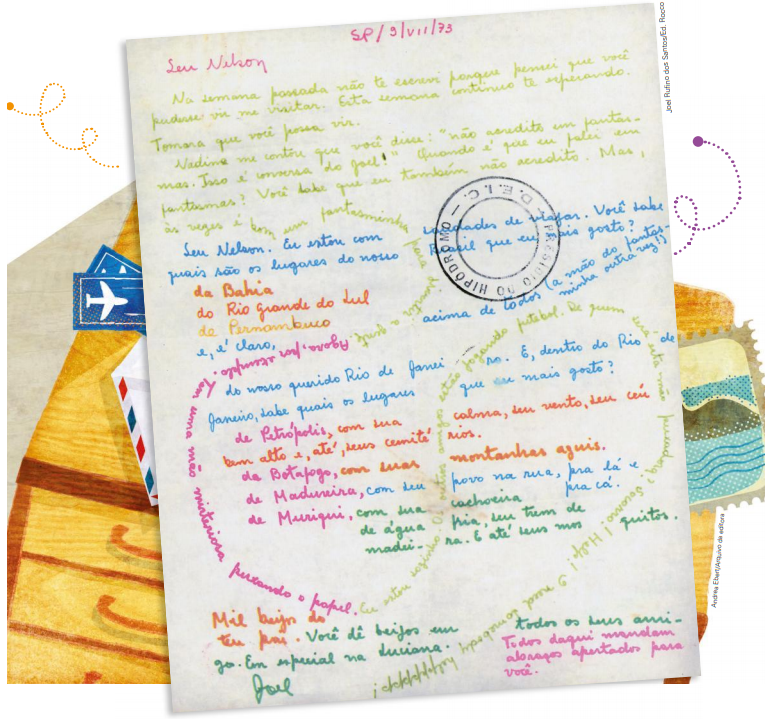 SP/9/VII/73
Seu Nelson
Na semana passada não te escrevi porque pensei que você
pudesse vir me visitar. Esta semana continuo te esperando.
Tomara que você possa vir.
Nedine me contou que você disse: "não acredito em fantas-
mas. Isso é conversa do Joel." Quando é que eu falei em
fantasmas? Você sabe que eu também não acredito. Mas,
às vezes é bom um fantasminha para
Seu Nelson. Eu estou com saudades de viajar. Você sabe
quais são os lugares do nosso Brasil que eu mais gosto?
da Bahia
do Rio Grande do Sul
de Pernambuco
e, é claro, acima de todos (a mão do fantas-
minha outra vez!)
do nosso querido Rio de Janei ro. E, dentro do Rio de
Janeiro, sabe quais os lugares que eu mais gosto?
de Petrópolis, com sua calma, seu vento, seu céu
bem alto e, até, seus cemité rios.
da Botafogo, com suas montanhas azuis.
de Madureira, com seu povo na rua, pra lá e
pra cá.
de Muriqui, com sua cachoeira
de água fria, seu trem de
madei- ra. E até seus mos quitos.
Agora, por exemplo. Tem uma mão misteriosa puxando o papel.
Eu estou sozinho. Os outros amigos estão jogando futebol. De quem será esta mão puxando
Mil beijos do
teu pai. Você dê beijos em todos os seus ami-
gos. Em especial na Luciana.
Todos daqui mandam
abraços apertados para
você.
Joel
PRESÍDIO DO HIPÓDROMO
— D.E.I.C. —
Joel Rufino dos Santos/Ed. Rocco
Andréa Ebert/Arquivo da editora